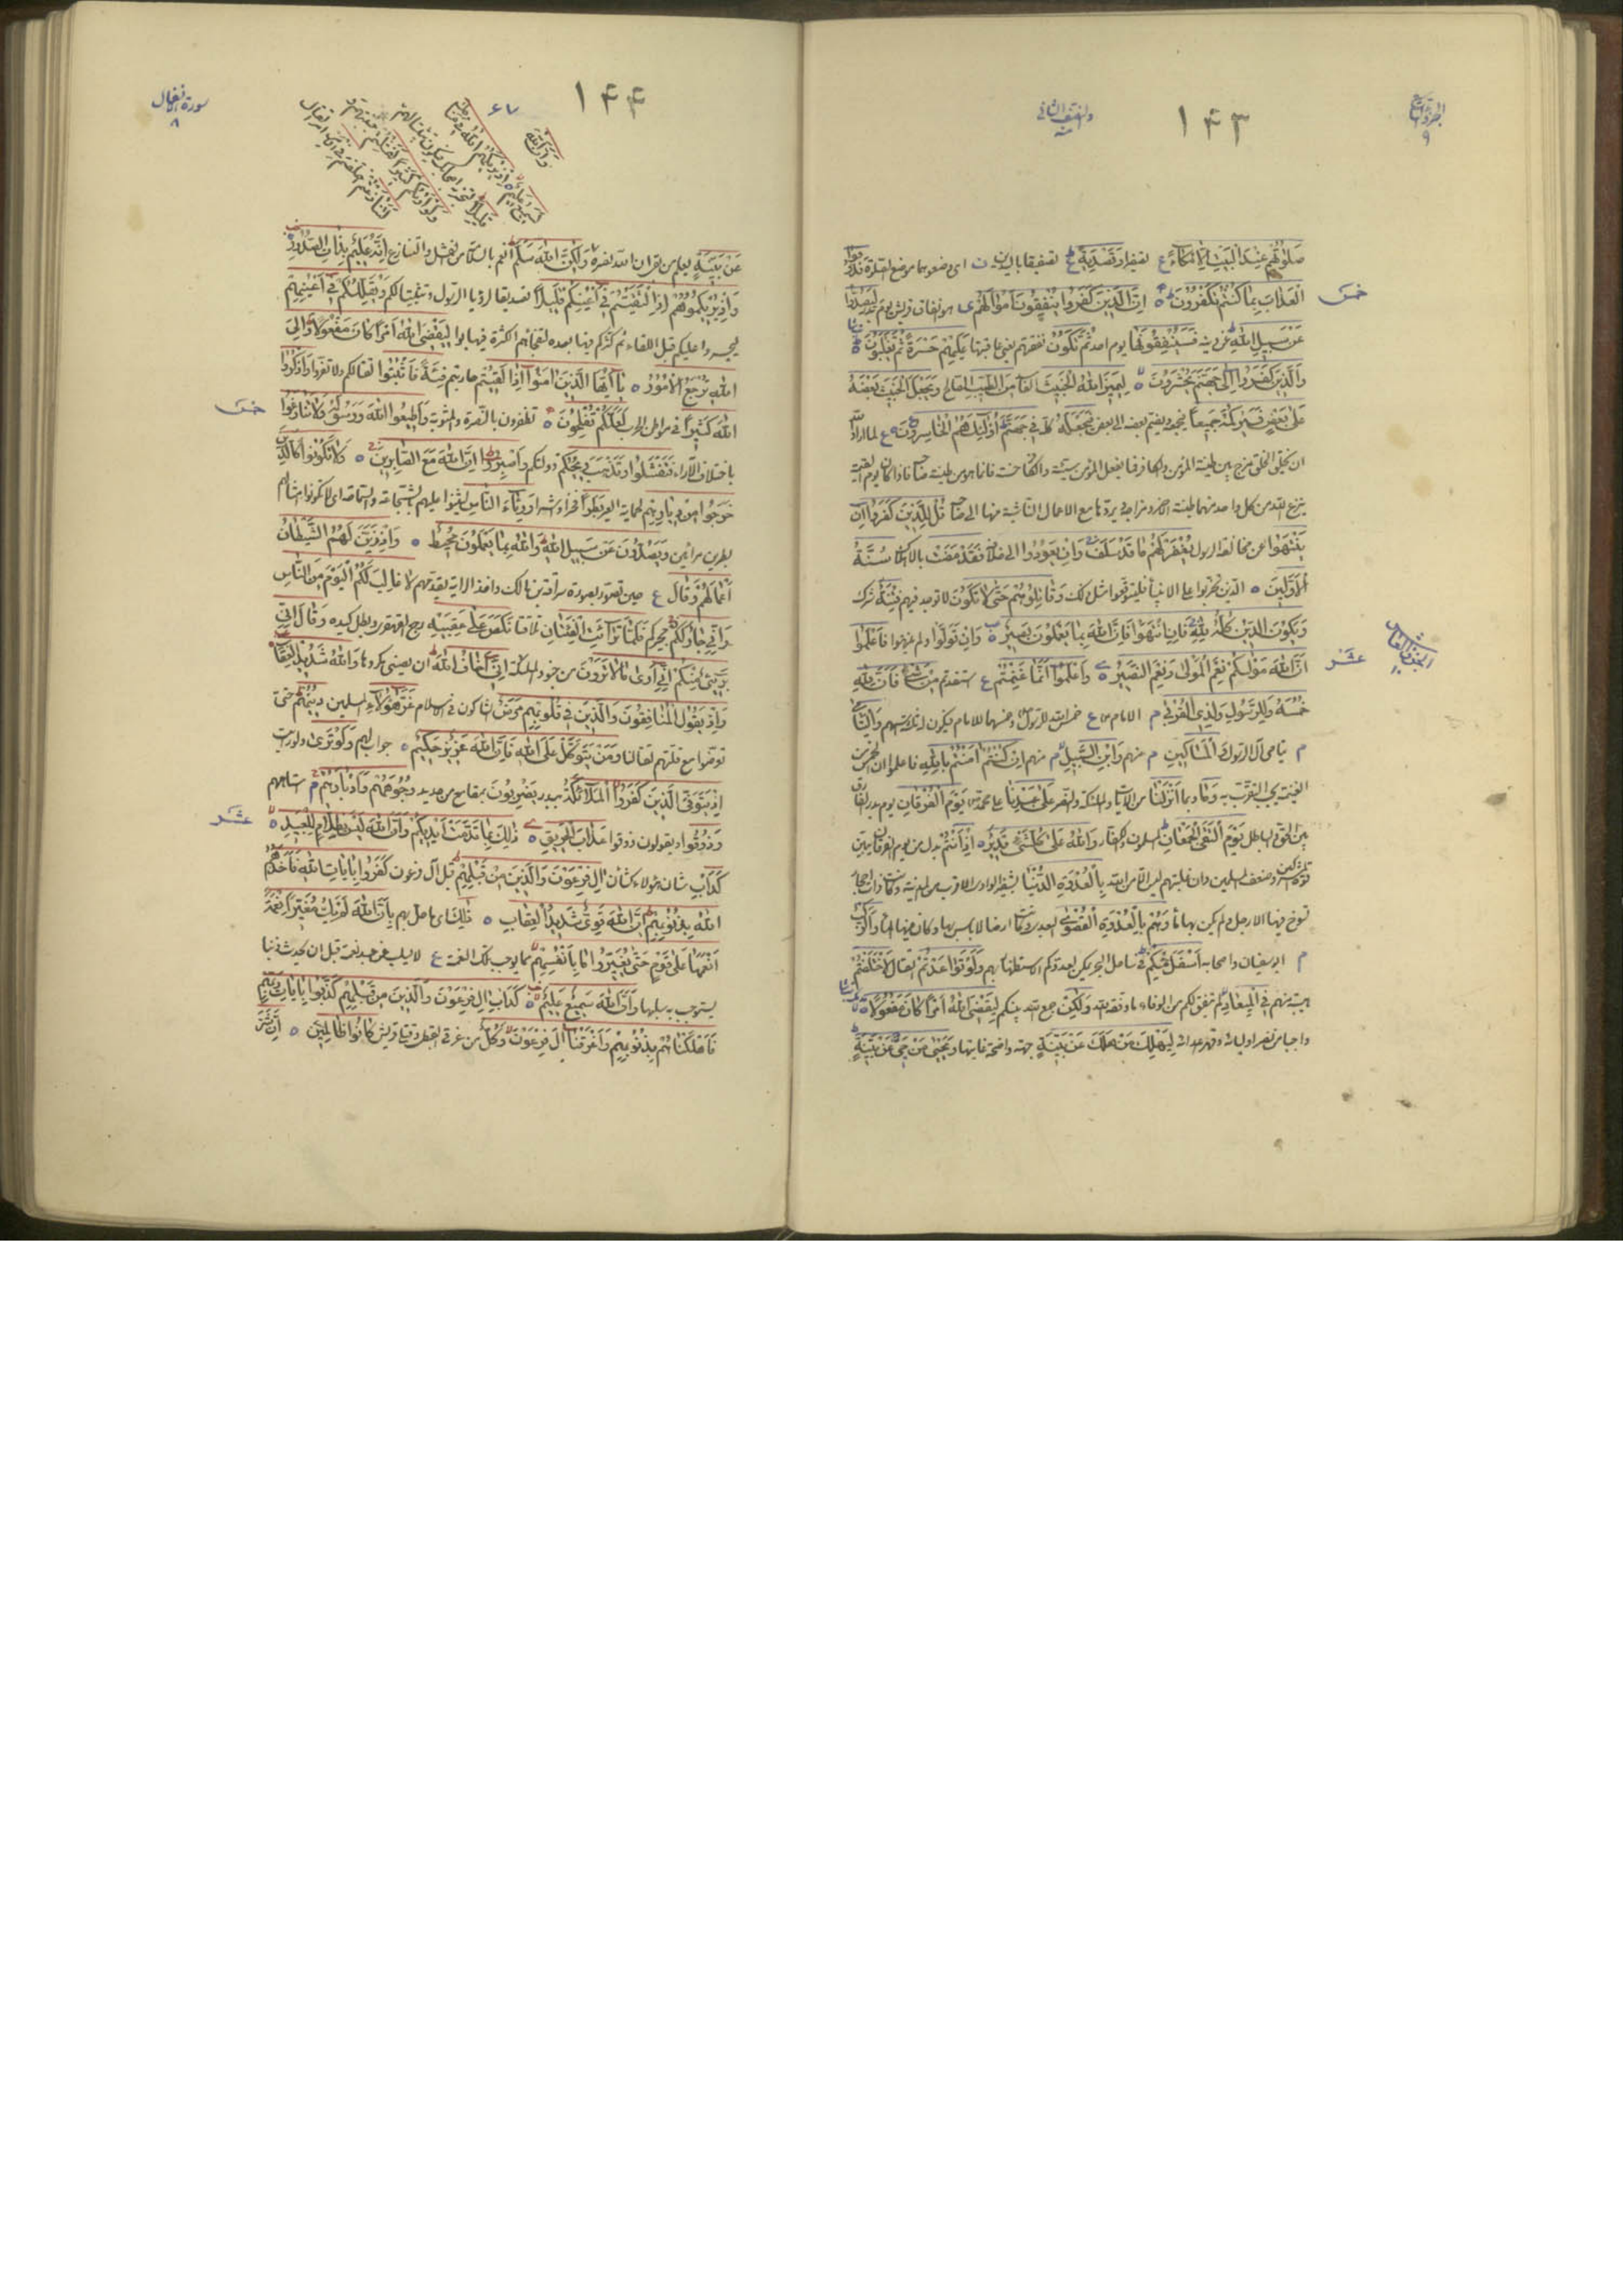 ١٤٣
صَلَوتُهُمْ عِنْدَ الْبَيْتِ اِلَّا مُكَاءً ع تصفيرا وَتَصْدِيَةً ع تصفيقا باليدين اى وضعوهما موضع الصلوة فَذُوقُوا
خمس
الْعَذَابَ بِمَا كُنْتُمْ تَكْفُرُونَ اِنَّ الَّذِينَ كَفَرُوا يُنْفِقُونَ اَمْوَالَهُمْ هو انفاق قريش يوم بدر لِيَصُدُّوا
عَنْ سَبِيلِ اللهِ عن دينه فَسَيُنْفِقُونَهَا يوم احد ثُمَّ تَكُونُ نفقتهم يعنى عاقبتها عَلَيْهِمْ حَسْرَةً ثُمَّ يُغْلَبُونَ
وَالَّذِينَ كَفَرُوا اِلَى جَهَنَّمَ يُحْشَرُونَ لِيَمِيزَ اللهُ الْخَبِيثَ الكافر مِنَ الطَّيِّبِ الصالح وَيَجْعَلَ الْخَبِيثَ بَعْضَهُ
عَلَى بَعْضٍ فَيَرْكُمَهُ جَمِيعًا يجمعه ويضم بعضه الى بعض فَيَجْعَلَهُ كله فِي جَهَنَّمَ اُولَئِكَ هُمُ الْخَاسِرُونَ ع لما اراد الله
ان يخلق الخلق مزج بين طينة المؤمن والكافر فما يفعل المؤمن من سيئة
ينزع الله من كل واحد منهما طينة الاخر مع الاعمال الناشئة منها الى صاحبها قُلْ لِلَّذِينَ كَفَرُوا اِنْ
يَنْتَهُوا عن مخالفة الرسول يُغْفَرْ لَهُمْ مَا قَدْ سَلَفَ وَاِنْ يَعُودُوا الى قتاله فَقَدْ مَضَتْ سُنَّةُ
الْاَوَّلِينَ الذين تحزبوا على الانبياء فليتوقعوا مثل ذلك وَقَاتِلُوهُمْ حَتَّى لَا تَكُونَ لا توجد فيهم فِتْنَةٌ شرك
وَيَكُونَ الدِّينُ كُلُّهُ لِلهِ فَاِنِ انْتَهَوْا فَاِنَّ اللهَ بِمَا يَعْمَلُونَ بَصِيرٌ وَاِنْ تَوَلَّوْا ولم ينتهوا فَاعْلَمُوا
عشر
اَنَّ اللهَ مَوْلَيكُمْ نِعْمَ الْمَوْلَى وَنِعْمَ النَّصِيرُ وَاعْلَمُوا اَنَّمَا غَنِمْتُمْ ع استفدتم مِنْ شَيْءٍ فَاَنَّ لِلهِ
خُمُسَهُ وَلِلرَّسُولِ وَلِذِي الْقُرْبَى م الامام ع خمس الله للرسول وخمسهما للامام وَالْيَتَامَى
م يتامى آل الرسول وَالْمَسَاكِينِ م منهم وَابْنِ السَّبِيلِ م منهم اِنْ كُنْتُمْ اَمَنْتُمْ بِاللهِ فاعلموا ان الخمس من
الغنيمة يجب التقرب به وَمَا وبما اَنْزَلْنَا من الآيات والملئكة والنصر عَلَى عَبْدِنَا محمد يَوْمَ الْفُرْقَانِ يوم بدر الفارق
بين الحق والباطل يَوْمَ الْتَقَى الْجَمْعَانِ المسلمون والكفار وَاللهُ عَلَى كُلِّ شَيْءٍ قَدِيرٌ اِذْ اَنْتُمْ بدل من يوم الفرقان
المشركين وضعف المسلمين وان غلبتهم ليس الا من الله بِالْعُدْوَةِ الدُّنْيَا
تسوخ فيها الارجل ولم يكن بها ماء وَهُمْ بِالْعُدْوَةِ الْقُصْوَى وكان فيها الماء وَالرَّكْبُ
م ابوسفيان واصحابه اَسْفَلَ مِنْكُمْ فى ساحل البحر وَلَوْ تَوَاعَدْتُمْ القتال لَاخْتَلَفْتُمْ
هيبة منهم فِي الْمِيعَادِ لم يتفق لكم من الوفاء ما وفقه الله وَلَكِنْ جمع الله بينكم لِيَقْضِيَ اللهُ اَمْرًا كَانَ مَفْعُولًا
واجبا من نصر اوليائه وقهر اعدائه لِيَهْلِكَ مَنْ هَلَكَ عَنْ بَيِّنَةٍ حجة واضحة قامت بها وَيَحْيَى مَنْ حَيَّ عَنْ بَيِّنَةٍ
١٤٤
سورة انفال
٨
عَنْ بَيِّنَةٍ وَلَكِنَّ اللهَ سَلَّمَ انعم بالسلامة من الفشل والتنازع اِنَّهُ عَلِيمٌ بِذَاتِ الصُّدُورِ
وَاِذْ يُرِيكُمُوهُمْ اِذِ الْتَقَيْتُمْ فِي اَعْيُنِكُمْ قَلِيلًا تصديقا لرؤيا الرسول وتثبيتا لكم وَيُقَلِّلُكُمْ فِي اَعْيُنِهِمْ
ليجسروا عليكم قبل اللقاء ثم كثركم فيها بعده لِيَقْضِيَ اللهُ اَمْرًا كَانَ مَفْعُولًا وَاِلَى
اللهِ تُرْجَعُ الْاُمُورُ يَا اَيُّهَا الَّذِينَ اَمَنُوا اِذَا لَقِيتُمْ حاربتم فِئَةً فَاثْبُتُوا لقتالكم ولا تفروا وَاذْكُرُوا
خمس
اللهَ كَثِيرًا فى مواطن الحرب لَعَلَّكُمْ تُفْلِحُونَ تظفرون بالنصرة والمثوبة وَاَطِيعُوا اللهَ وَرَسُولَهُ وَلَا تَنَازَعُوا
باختلاف الآراء فَتَفْشَلُوا وَتَذْهَبَ رِيحُكُمْ دولتكم وَاصْبِرُوا اِنَّ اللهَ مَعَ الصَّابِرِينَ وَلَا تَكُونُوا كَالَّذِينَ
خَرَجُوا مِنْ دِيَارِهِمْ لحماية العير بَطَرًا فخرا واشرا وَرِئَاءَ النَّاسِ ليثنوا عليهم بالشجاعة والسماحة اى لا تكونوا امثالهم
بطرين مرائين وَيَصُدُّونَ عَنْ سَبِيلِ اللهِ وَاللهُ بِمَا يَعْمَلُونَ مُحِيطٌ وَاِذْ زَيَّنَ لَهُمُ الشَّيْطَانُ
اَعْمَالَهُمْ وَقَالَ ع حين تصور بصورة سراقة بن مالك واخذ الراية يقدمهم لَا غَالِبَ لَكُمُ الْيَوْمَ مِنَ النَّاسِ
وَاِنِّي جَارٌ لَكُمْ مجيركم فَلَمَّا تَرَائَتِ الْفِئَتَانِ تلاقتا نَكَصَ عَلَى عَقِبَيْهِ رجع القهقرى وبطل كيده وَقَالَ اِنِّي
بَرِيءٌ مِنْكُمْ اِنِّي اَرَى مَا لَا تَرَوْنَ من جنود الملئكة اِنِّي اَخَافُ اللهَ ان يصيبنى بمكروه وَاللهُ شَدِيدُ الْعِقَابِ
وَاِذْ يَقُولُ الْمُنَافِقُونَ وَالَّذِينَ فِي قُلُوبِهِمْ مَرَضٌ الشاكون فى الاسلام غَرَّ هَؤُلَاءِ المسلمين دِينُهُمْ حتى
تعرضوا مع قلتهم لقتالنا وَمَنْ يَتَوَكَّلْ عَلَى اللهِ فَاِنَّ اللهَ عَزِيزٌ حَكِيمٌ جواب لهم وَلَوْ تَرَى ولو رأيت
اِذْ يَتَوَفَّى الَّذِينَ كَفَرُوا الْمَلَائِكَةُ ببدر يَضْرِبُونَ بمقامع من حديد وُجُوهَهُمْ وَاَدْبَارَهُمْ م استاههم
عشر
وَذُوقُوا ويقولون ذوقوا عَذَابَ الْحَرِيقِ ذَلِكَ بِمَا قَدَّمَتْ اَيْدِيكُمْ وَاَنَّ اللهَ لَيْسَ بِظَلَّامٍ لِلْعَبِيدِ
كَدَأْبِ شان هؤلاء كشان اَلِ فِرْعَوْنَ وَالَّذِينَ مِنْ قَبْلِهِمْ قبل آل فرعون كَفَرُوا بِاَيَاتِ اللهِ فَاَخَذَهُمُ
اللهُ بِذُنُوبِهِمْ اِنَّ اللهَ قَوِيٌّ شَدِيدُ الْعِقَابِ ذَلِكَ اى ما حل بهم بِاَنَّ اللهَ لَمْ يَكُ مُغَيِّرًا نِعْمَةً
اَنْعَمَهَا عَلَى قَوْمٍ حَتَّى يُغَيِّرُوا مَا بِاَنْفُسِهِمْ بما يوجب تلك النعمة ع لا يسلب عن عبد نعمة قبل ان يحدث ذنبا
يستوجب به سلبها وَاَنَّ اللهَ سَمِيعٌ عَلِيمٌ كَدَأْبِ اَلِ فِرْعَوْنَ وَالَّذِينَ مِنْ قَبْلِهِمْ كَذَّبُوا بِاَيَاتِ رَبِّهِمْ
فَاَهْلَكْنَاهُمْ بِذُنُوبِهِمْ وَاَغْرَقْنَا اَلَ فِرْعَوْنَ وَكُلٌّ من غرقى القبط وقتلى قريش كَانُوا ظَالِمِينَ اِنَّ شَرَّ